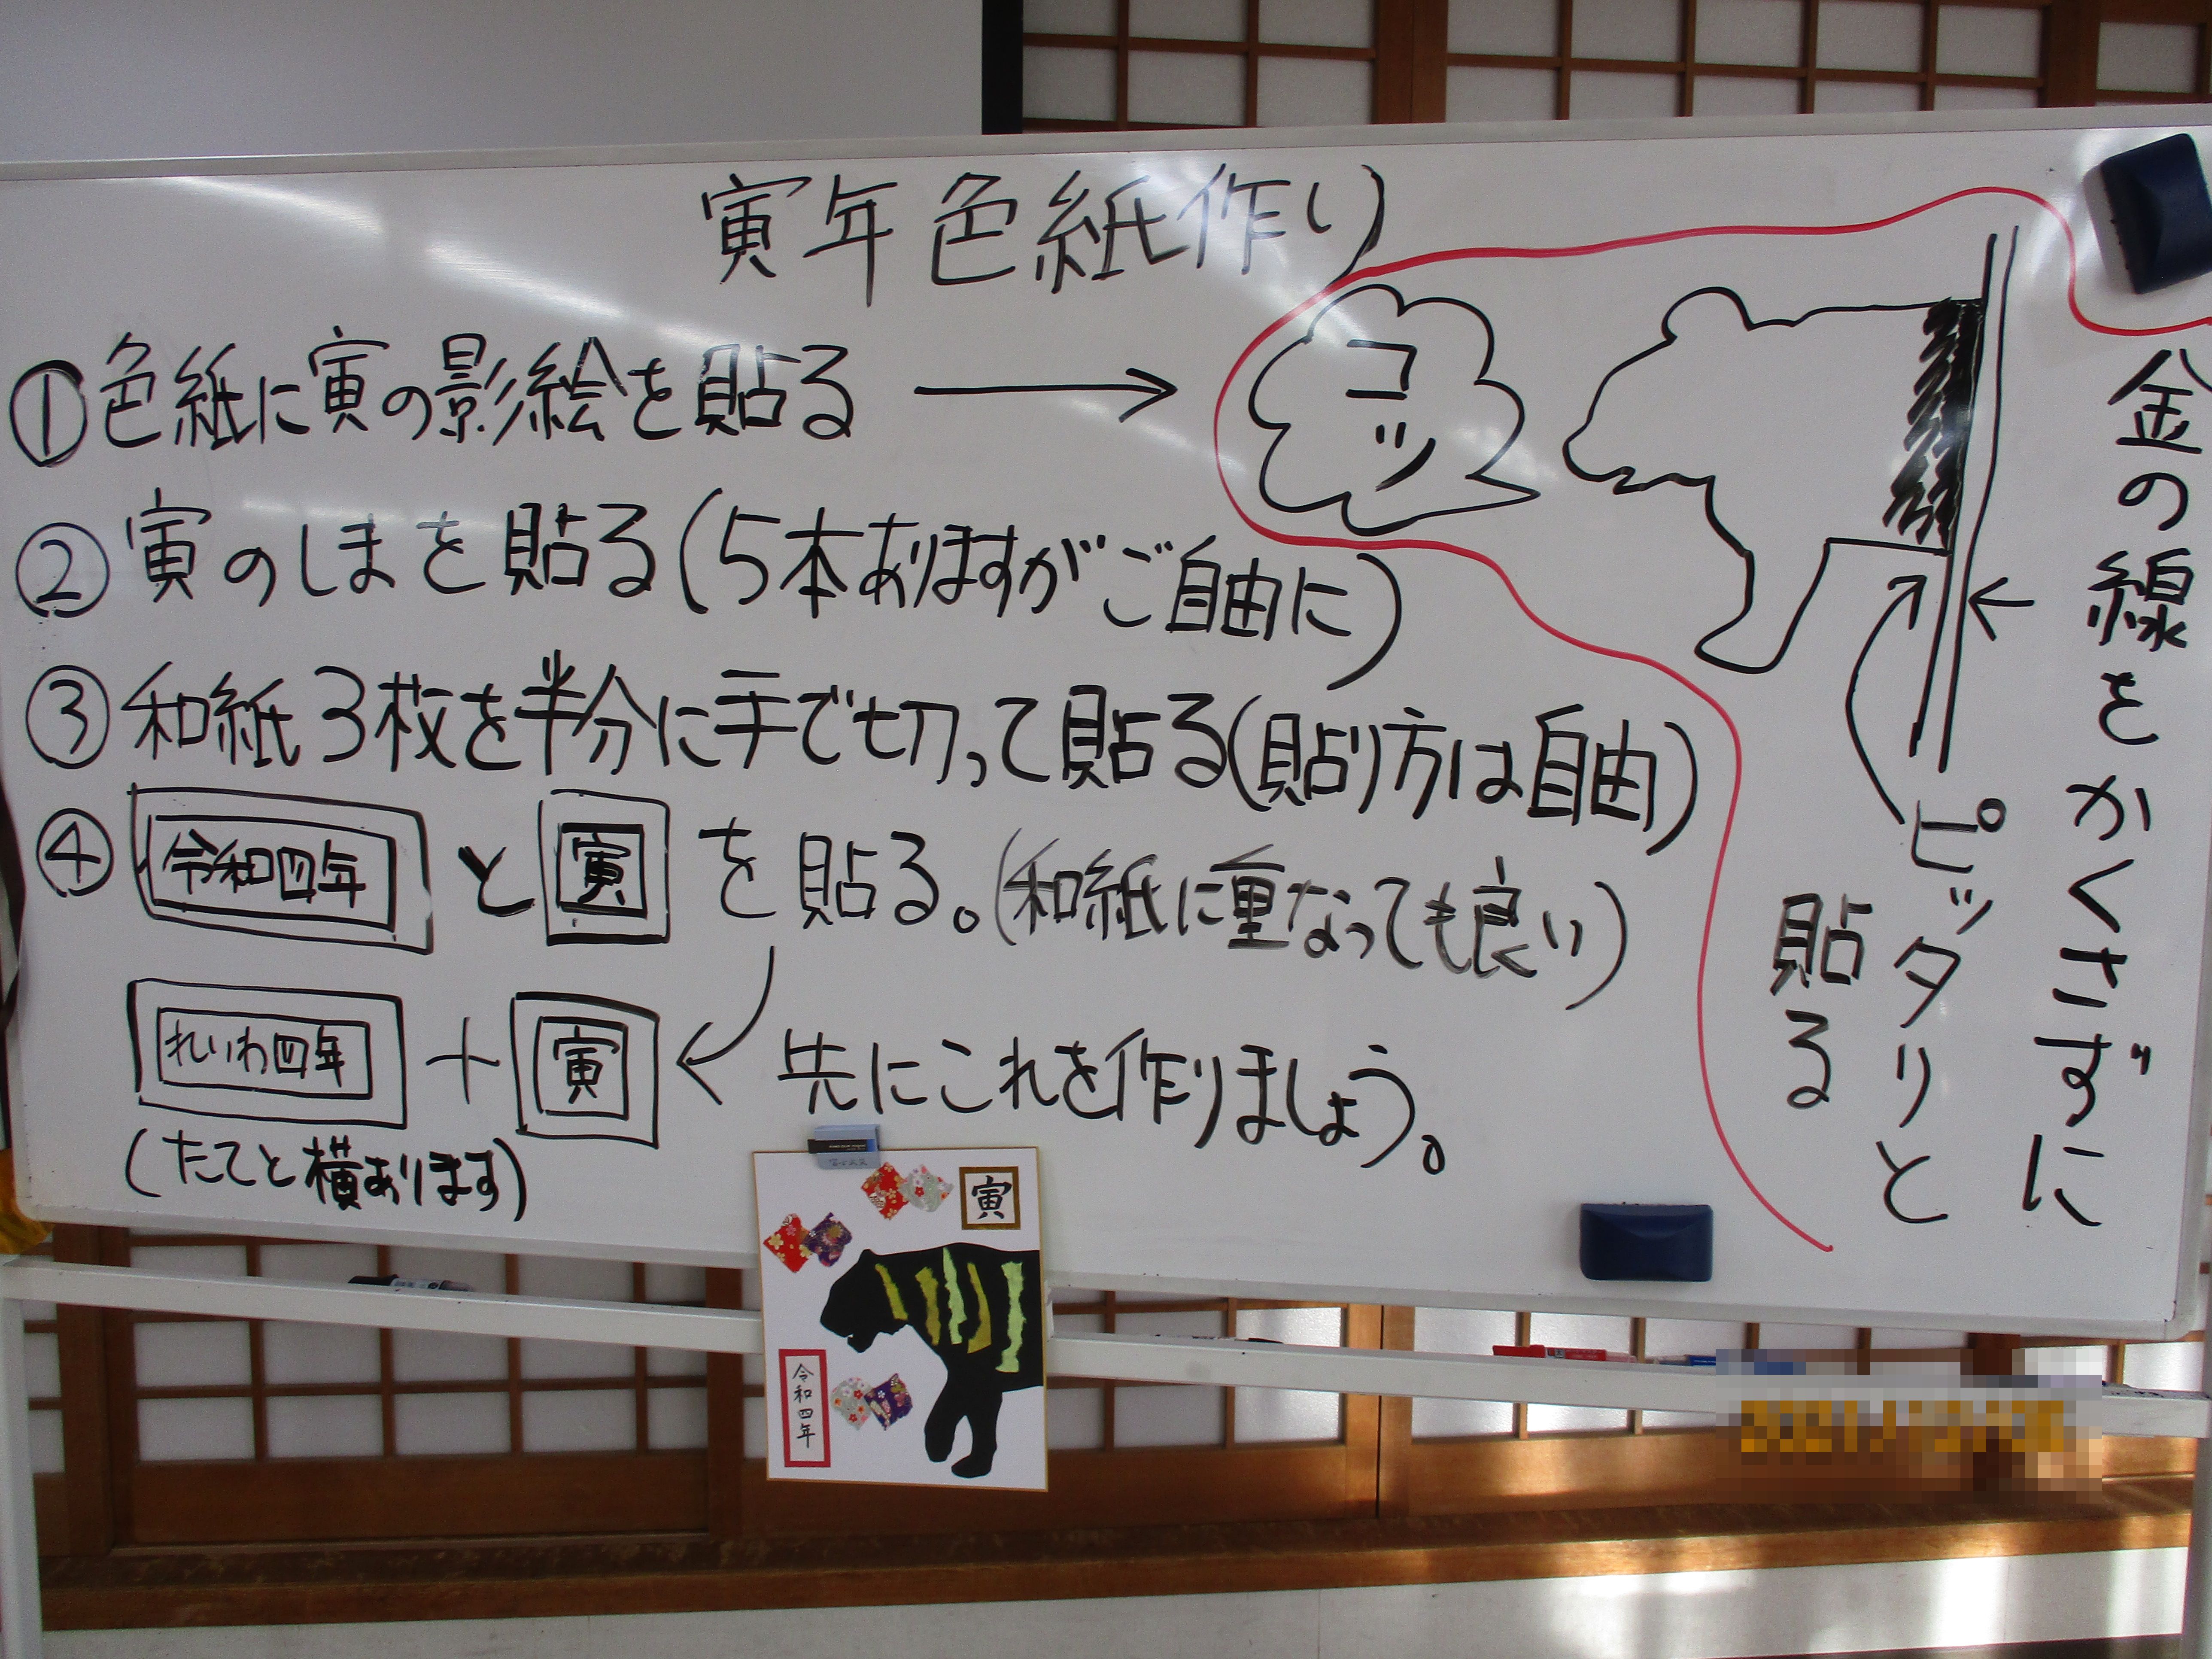 寅年色紙作り
①色紙に寅の影絵を貼る →
②寅のしまを貼る(5本ありますがご自由に)
③和紙3枚を半分に手で切って貼る(貼り方は自由)
④令和四年と寅を貼る。(和紙に重なっても良い)
れいわ四年+寅 ← 先にこれを作りましょう。
(たてと横あります)
コツ
金の線をかくさずに
ピッタリと
貼る
寅
令和四年